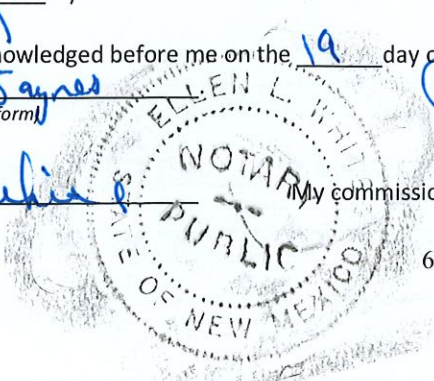 nowledged before me on the 19 day o
Jaynes
form)
ELLEN L. WHITE
NOTARY
PUBLIC
My commissio
STATE OF NEW MEXICO
6